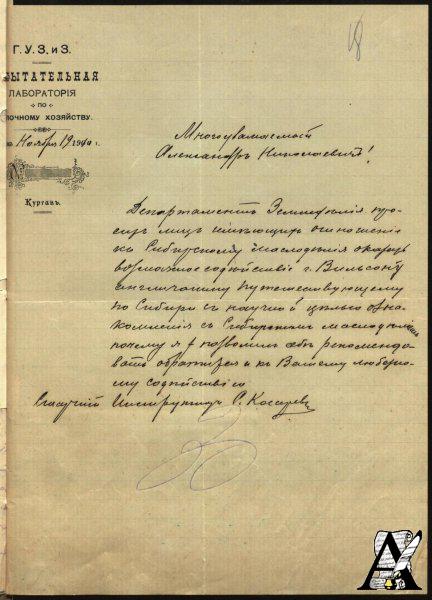 18
Г. У. З. и З.
ЫТАТЕЛЬНАЯ
ЛАБОРАТОРІЯ
ПО
ОЧНОМУ ХОЗЯЙСТВУ.
Ноября 19 1910 г.
Курганъ.
Многоуважаемый
Александръ Николаевичъ!
Департаментъ Земледѣлія про-
ситъ лицъ имѣющихъ отношеніе
къ Сибирскому маслодѣлію оказать
возможное содѣйствіе г. Вильсону
англичанину путешествующему
по Сибири съ научной цѣлью озна-
комленія съ Сибирскимъ маслодѣліемъ
почему я и позволилъ себѣ рекомендо-
вать обратиться и къ Вашему любезно-
му содѣйствію
Инструкторъ С. Косаревъ
А